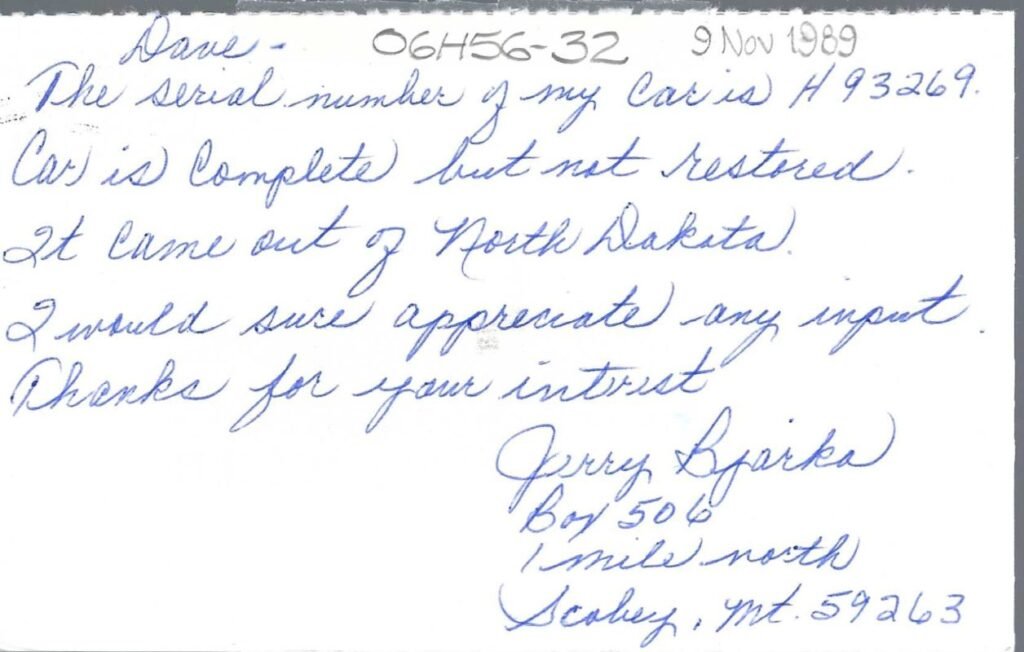 Dave - 06H56-32 9 Nov 1989
The serial number of my car is H 93269.
Car is Complete but not restored.
It came out of North Dakota.
I would sure appreciate any input.
Thanks for your intrest
Jerry Bjarko
Box 506
1 mile north
Scobey, Mt. 59263